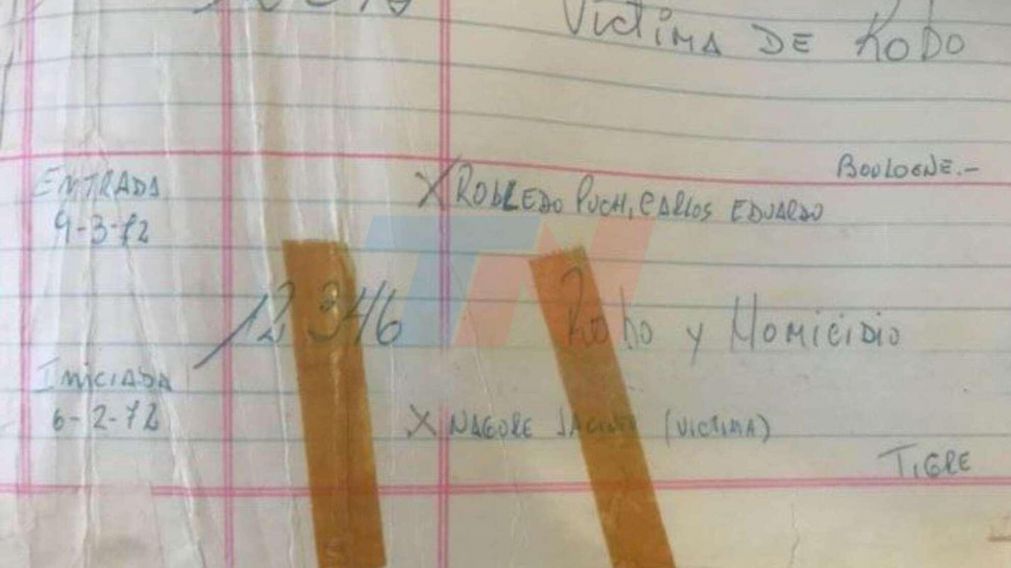 VICTIMA DE ROBO
BOULOGNE.-
ENTRADA
9-3-72
X ROBLEDO PUCH, CARLOS EDUARDO
TN
12346
Robo y Homicidio
INICIADA
6-2-72
X NAGORE JACINTO (VICTIMA)
TIGRE